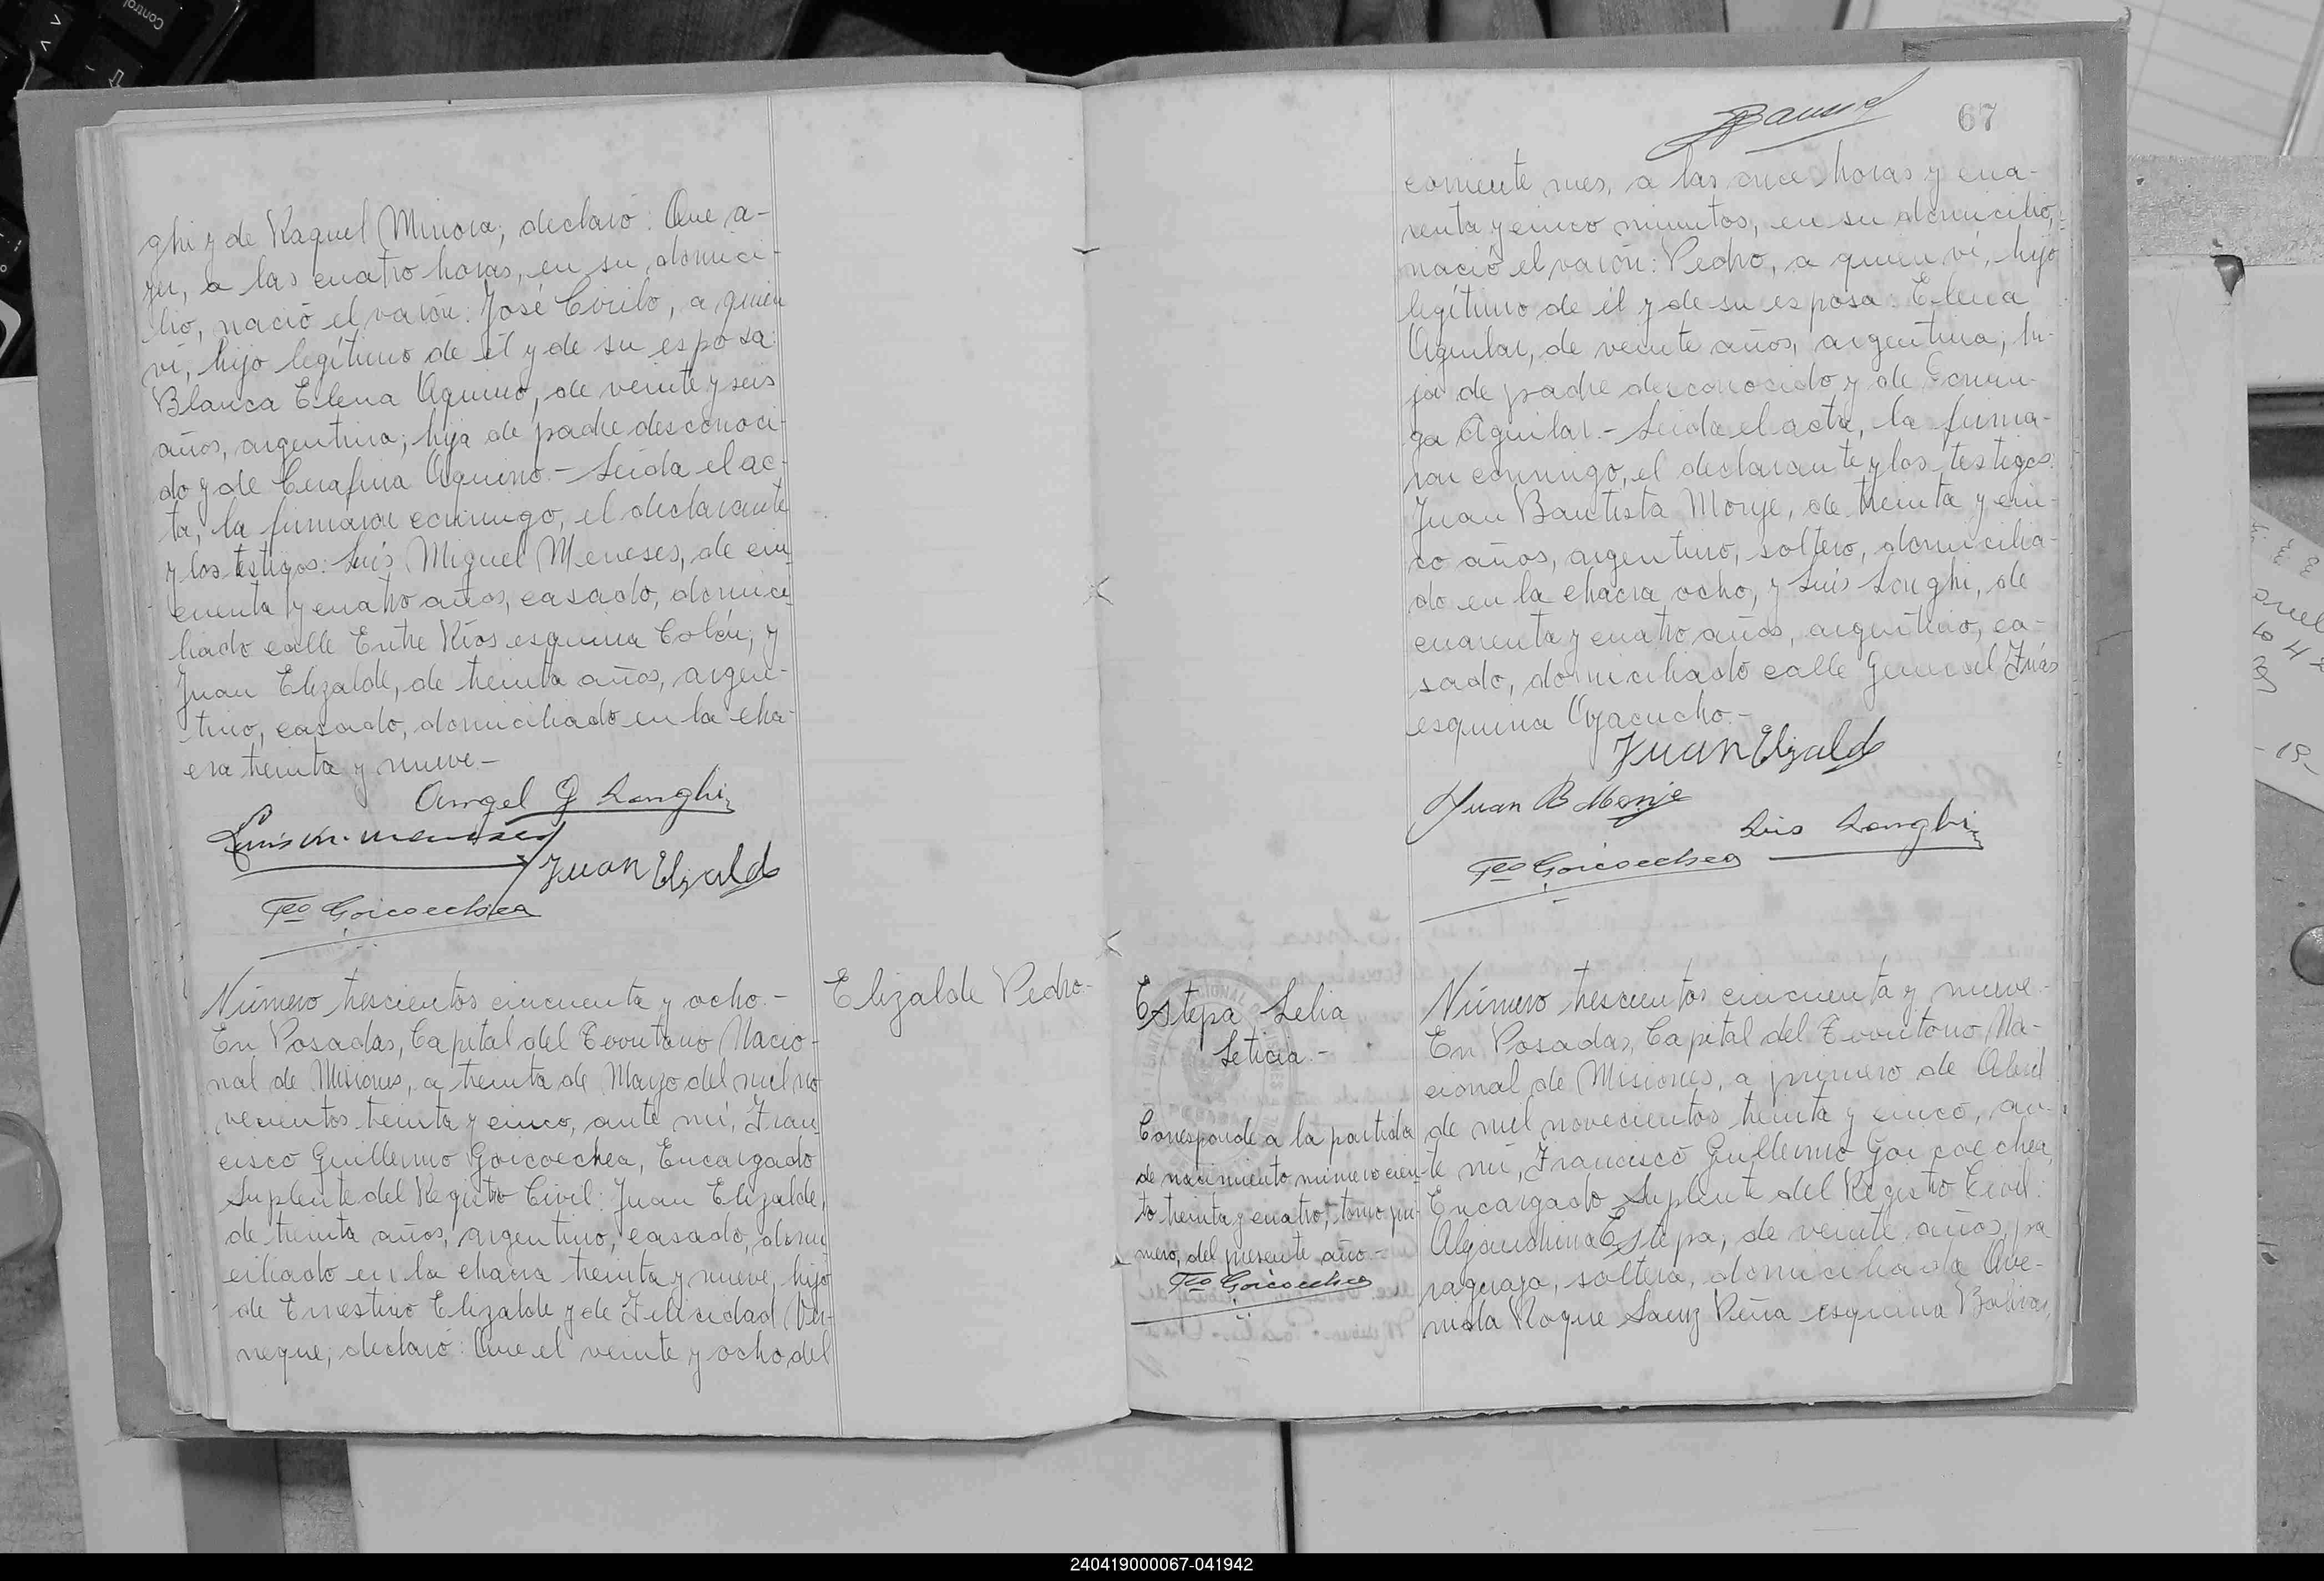 ghi y de Raquel Minora, declaró: Que a-
yer, a las cuatro horas, en su domici-
lio, nació el varón: José Cirilo, a quien
ví, hijo legítimo de él y de su esposa:
Blanca Elena Aquino, de veinte y seis
años, argentina; hija de padre desconoci-
do y de Cerafina Aquino.- Leída el ac-
ta, la firmaron conmigo, el declarante
y los testigos: Luis Miguel Meneses, de cin
cuenta y cuatro años, casado, domici-
liado calle Entre Ríos esquina Colón; y
Juan Elizalde, de treinta años, argen-
tino, casado, domiciliado en la cha-
cra treinta y nueve.-
Angel G Longhi
Luis M. Meneses
Juan Elizalde
Fco Goicoechea
Número trescientos cincuenta y ocho.-
En Posadas, Capital del Territorio Nacio-
nal de Misiones, a treinta de Mayo del mil no
vecientos treinta y cinco, ante mí, Fran-
cisco Guillermo Goicoechea, Encargado
Suplente del Registro Civil: Juan Elizalde,
de treinta años, argentino, casado, domi-
ciliado en la chacra treinta y nueve, hijo
de Ernestino Elizalde y de Felicidad
neque; declaró: Que el veinte y ocho del
Elizalde Pedro.-
67
corriente mes, a las once horas y cua-
renta y cinco minutos, en su domicilio,
nació el varón: Pedro, a quien ví, hijo
legítimo de él y de su esposa: Elena
Aguilar, de veinte años, argentina; hi-
ja de padre desconocido y de
ga Aguilar.- Leída el acta, la firma-
ron conmigo, el declarante y los testigos:
Juan Bautista Monje, de treinta y cin-
co años, argentino, soltero, domicilia-
do en la chacra ocho, y Luis Longhi, de
cuarenta y cuatro años, argentino, ca-
sado, domiciliado calle General Frías
esquina Ayacucho.-
Juan Elizalde
Juan B Monje
Luis Longhi
Fco Goicoechea
Estepa Lelia
Leticia.-
Corresponde a la partida
de nacimiento número cien-
to treinta y cuatro, tomo pri-
mero, del presente año.-
Fco Goicoechea
Número trescientos cincuenta y nueve.-
En Posadas, Capital del Territorio Na-
cional de Misiones, a primero de Abril
de mil novecientos treinta y cinco, an-
te mí, Francisco Guillermo Goicoechea,
Encargado Suplente del Registro Civil:
Estepa, de veinte años, pa
raguaya, soltera, domiciliada Ave-
nida Roque Saenz Peña esquina Bolívar,
240419000067-041942